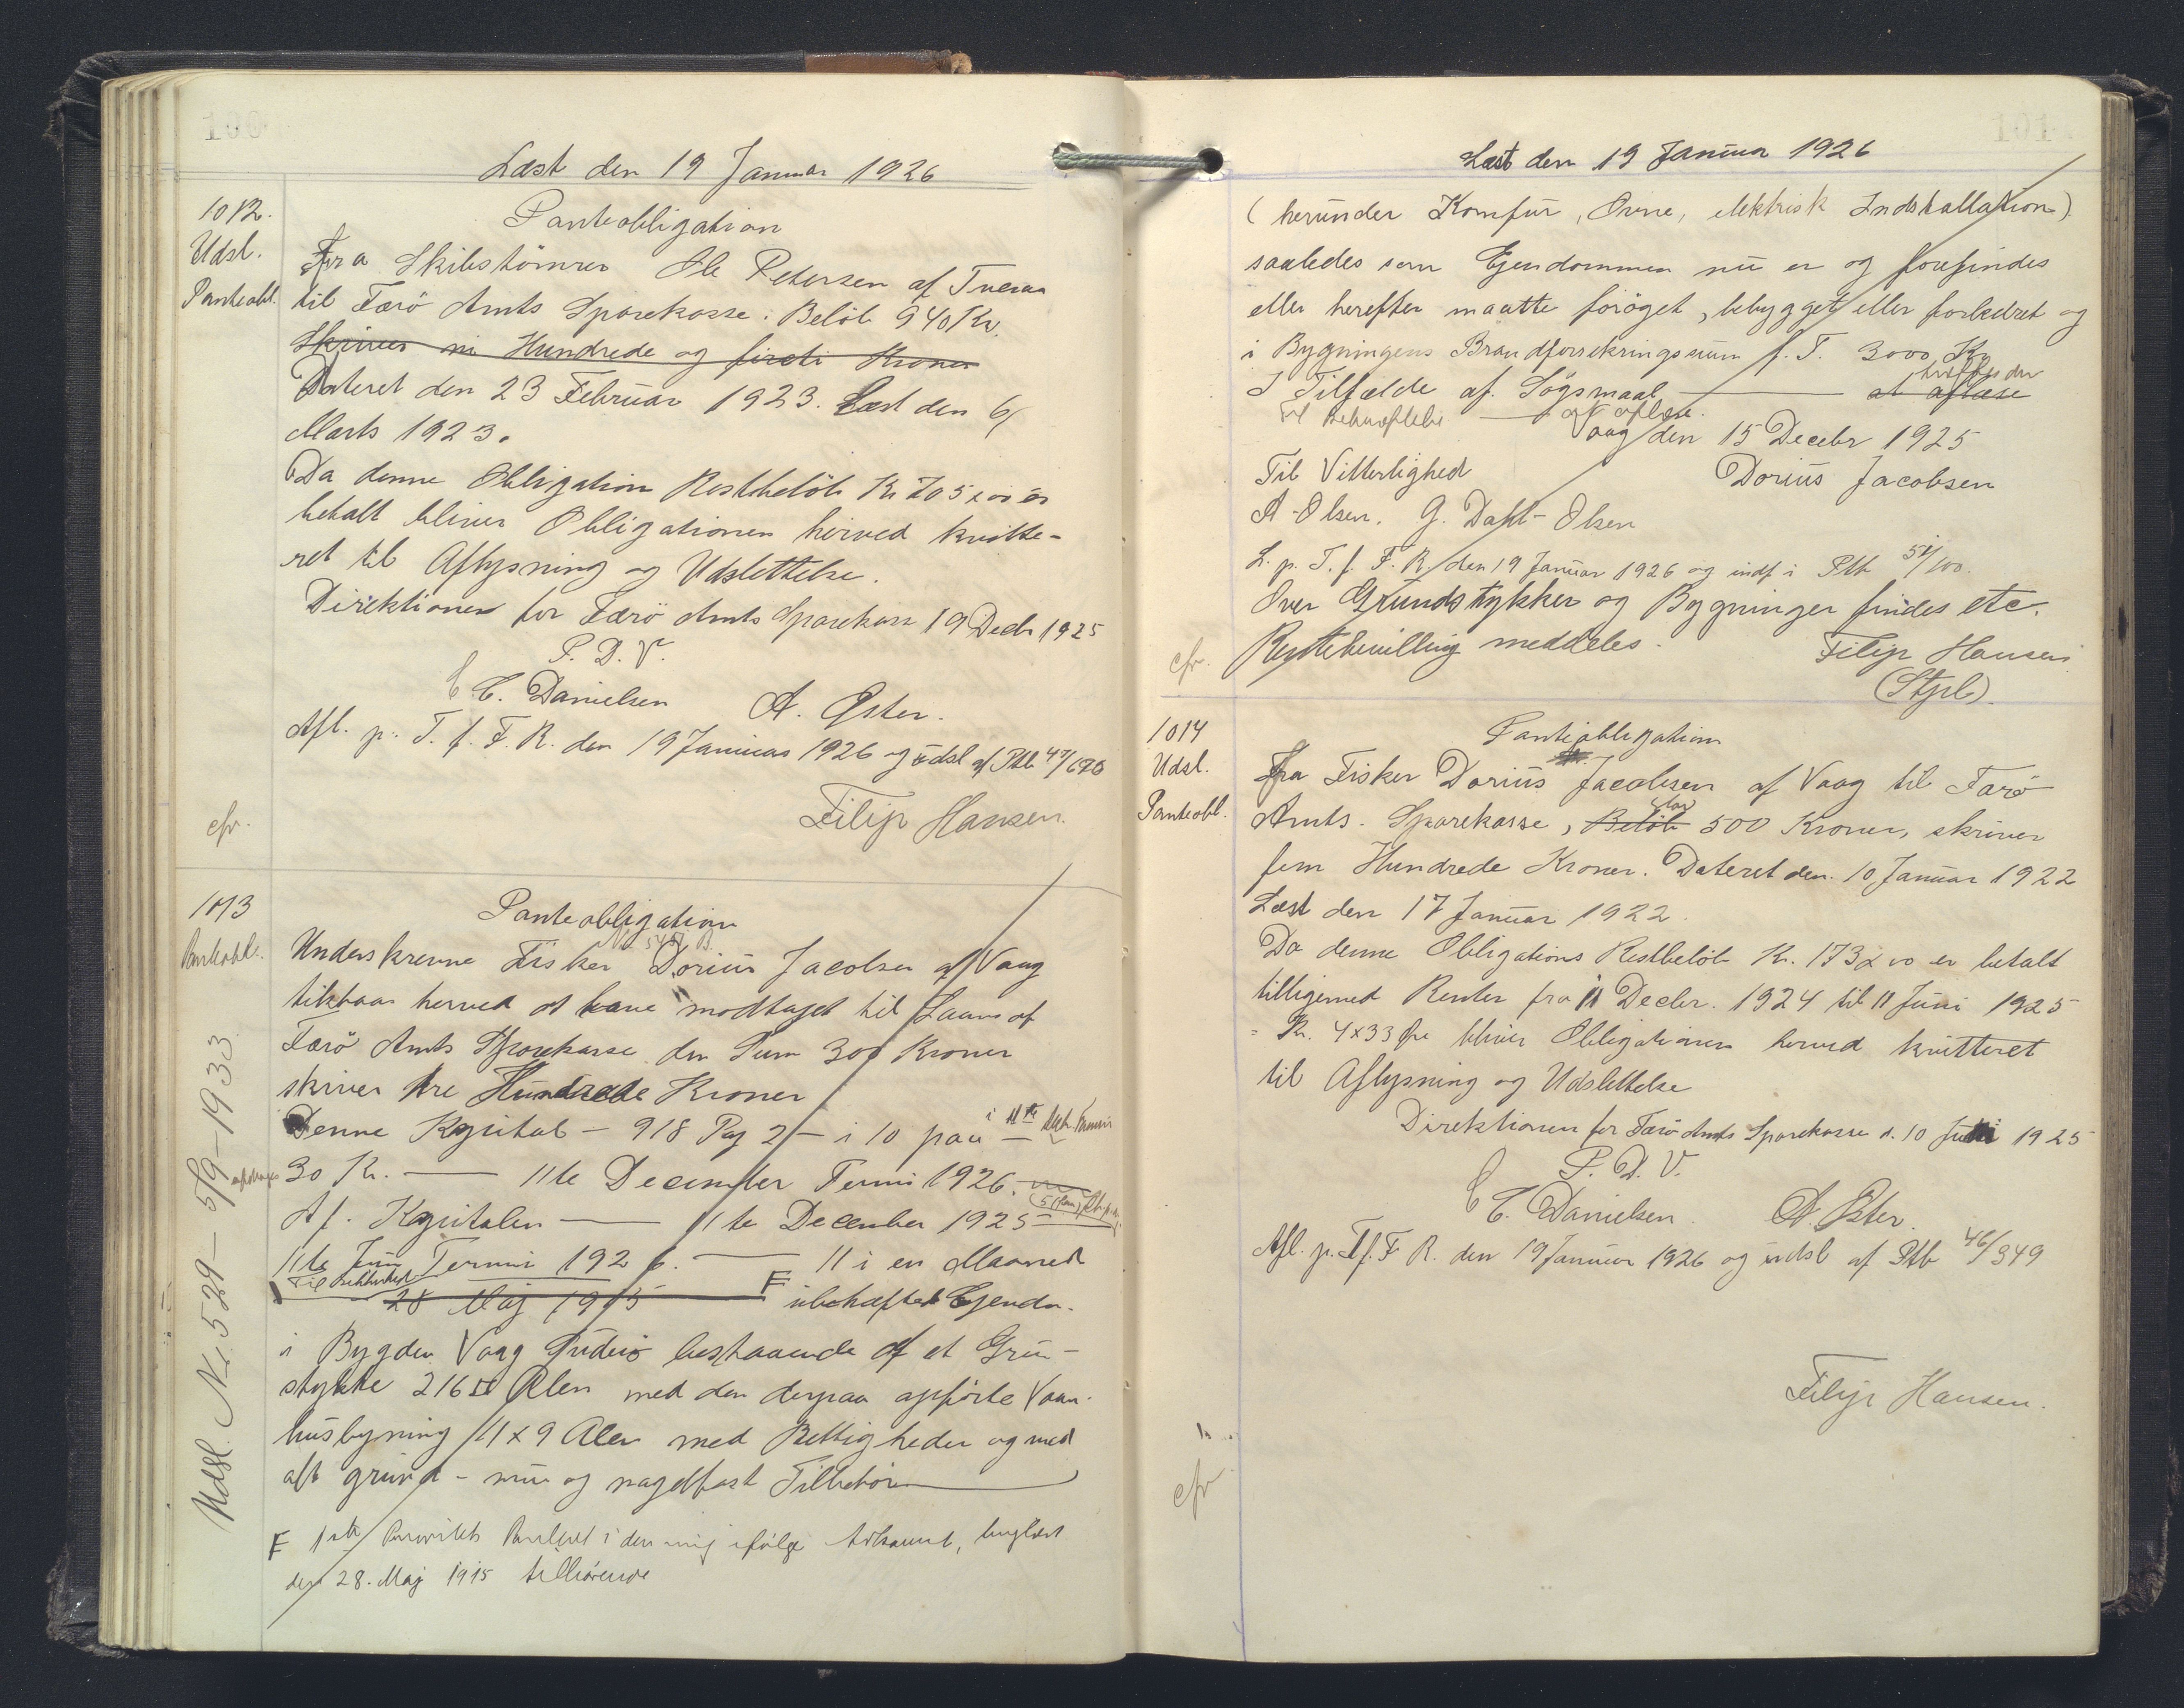 100
Læst den 19 Januar 1926
1012.
Udsl.
Panteobl.
Panteobligation
Fra Skibstömrer Ole Petersen af Tveraa
til Færö Amts Sparekasse: Belöb 940 Kr.
Skriver ni Hundrede og fireti Kroner
Dateret den 23 Februar 1923. Læst den 6/
Marts 1923.
Da denne Obligation Restbelöb Kr 705 x 00 er
betalt bliver Obligationen herved kvitte-
ret til Aflysning og Udslettelse.
Direktionen for Færö Amts Sparekasse 19 Decbr 1925
P. D. V.
C. C. Danielsen A. Öster.
Afl. p. T. f. F. R. den 19 Januar 1926 og udsl af Ptb 47/690
Filip Hansen.
cfr.
1013
Panteobl.
Panteobligation
Underskrevne Fisker Dorius Jacobsen af Vaag
tilstaar herved at have modtaget til Laans af
Færö Amts Sparekasse den Sum 300 Kroner
skriver tre Hundrede Kroner
Denne Kapital – 918 Pag 2 – i 10 paa –
30 Kr. — 11te December Termin 1926.
Af. Kapitalen — 11te December 1925
11te Juni Termin 1926. — 11 i en Maaned
28 Maj 1915 F ubehæftet Ejendn.
i Bygden Vaag Suderö bestaaende af et Grun-
stykke 216 □ Alen med den derpaa opförte Vaan-
husbygning 11 x 9 Alen med Rettigheder og med
alt grund – mur og nagelfast Tilbehör
F 1ste Prioritets Panteret i den mig ifölge Adkomst, tinglæst
den 28. Maj 1915 tilhörende
Udsl. No. 529 – 5/9 – 1933
101
Læst den 19 Januar 1926
(herunder Komfur, Ovne, elektrisk Indstallation)
saaledes som Ejendommen nu er og forefindes
eller herefter maatte foröget, bebygget eller forbedret og
i Bygningens Brandforsekringssum f. T. 3000 Kr.
I Tilfælde af Sögsmaal — at aflæse
Til Bekræftelse — at aflæse.
Vaag den 15 Decebr 1925
Til Vitterlighed Dorius Jacobsen
A. Olsen. G. Dahl-Olsen
L. p. T. f. F. R. den 19 Januar 1926 og indf i Ptb 51/100.
Over Grundstykker og Bygninger findes etc.
cfr. Rettebevilling meddeles. Filip Hansen
(Stpl).
1014
Udsl.
Panteobl.
Panteobligation
Fra Fisker Dorius Jacobsen af Vaag til Færö
Amts. Sparekasse, Belöb stor 500 Kroner, skriver
fem Hundrede Kroner. Dateret den. 10 Januar 1922
Læst den 17 Januar 1922.
Da denne Obligations Restbelöb Kr. 173 x 00 er betalt
tilligemed Renter fra 11 Decbr. 1924 til 11 Juni 1925
= Kr. 4 x 33 Öre bliver Obligationen herved kvitteret
til Aflysning og Udslettelse
Direktionen for Færö Amts Sparekasse d. 10 Juli 1925
P. D. V.
C. C. Danielsen. A. Öster.
Afl. p. T. f. F R. den 19 Januar 1926 og udsl af Ptb 46/349
Filip Hansen.
cfr